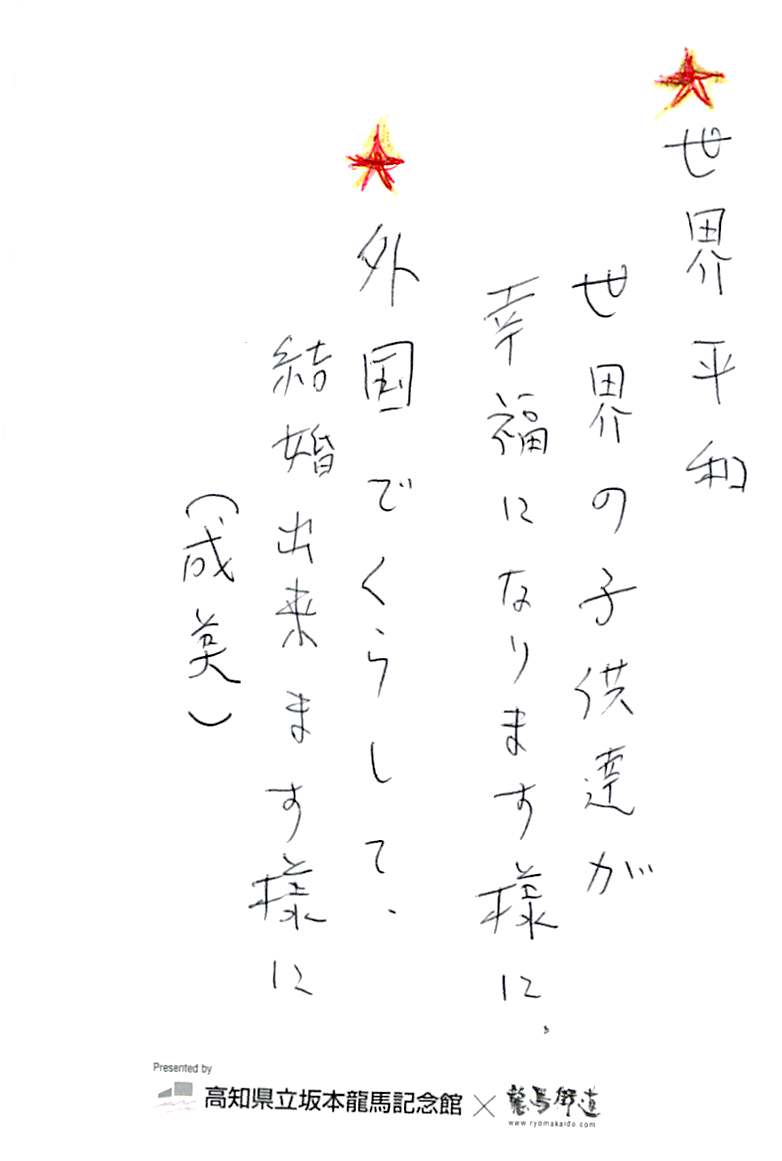 世界平和
世界の子供達が
幸福になります様に。
外国でくらして、
結婚出来ます様に
(成美)
Presented by
高知県立坂本龍馬記念館 × 龍馬街道
www.ryomakaido.com